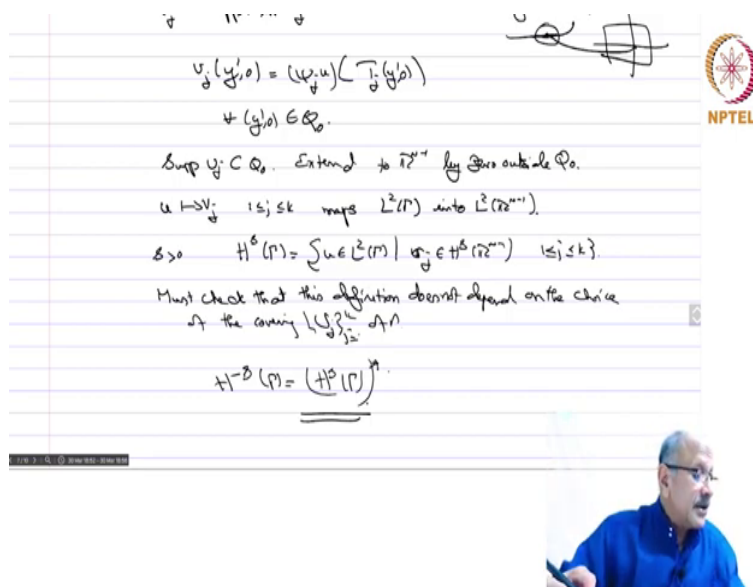 v_j(y',0) = (ψ_j u)(T_j(y',0))
∀ (y',0) ∈ Q_0.
Supp v_j ⊂ Q_0. Extend to ℝ^{n-1} by zero outside Q_0.
u ↦ v_j 1≤j≤k maps L²(Γ) into L²(ℝ^{n-1}).
s>0 H^s(Γ) = {u ∈ L²(Γ) | v_j ∈ H^s(ℝ^{n-1}) 1≤j≤k}.
Must check that this definition does not depend on the choice
of the covering {U_j}_{j=1}^k of Γ
H^{-s}(Γ) = (H^s(Γ))*.
NPTEL